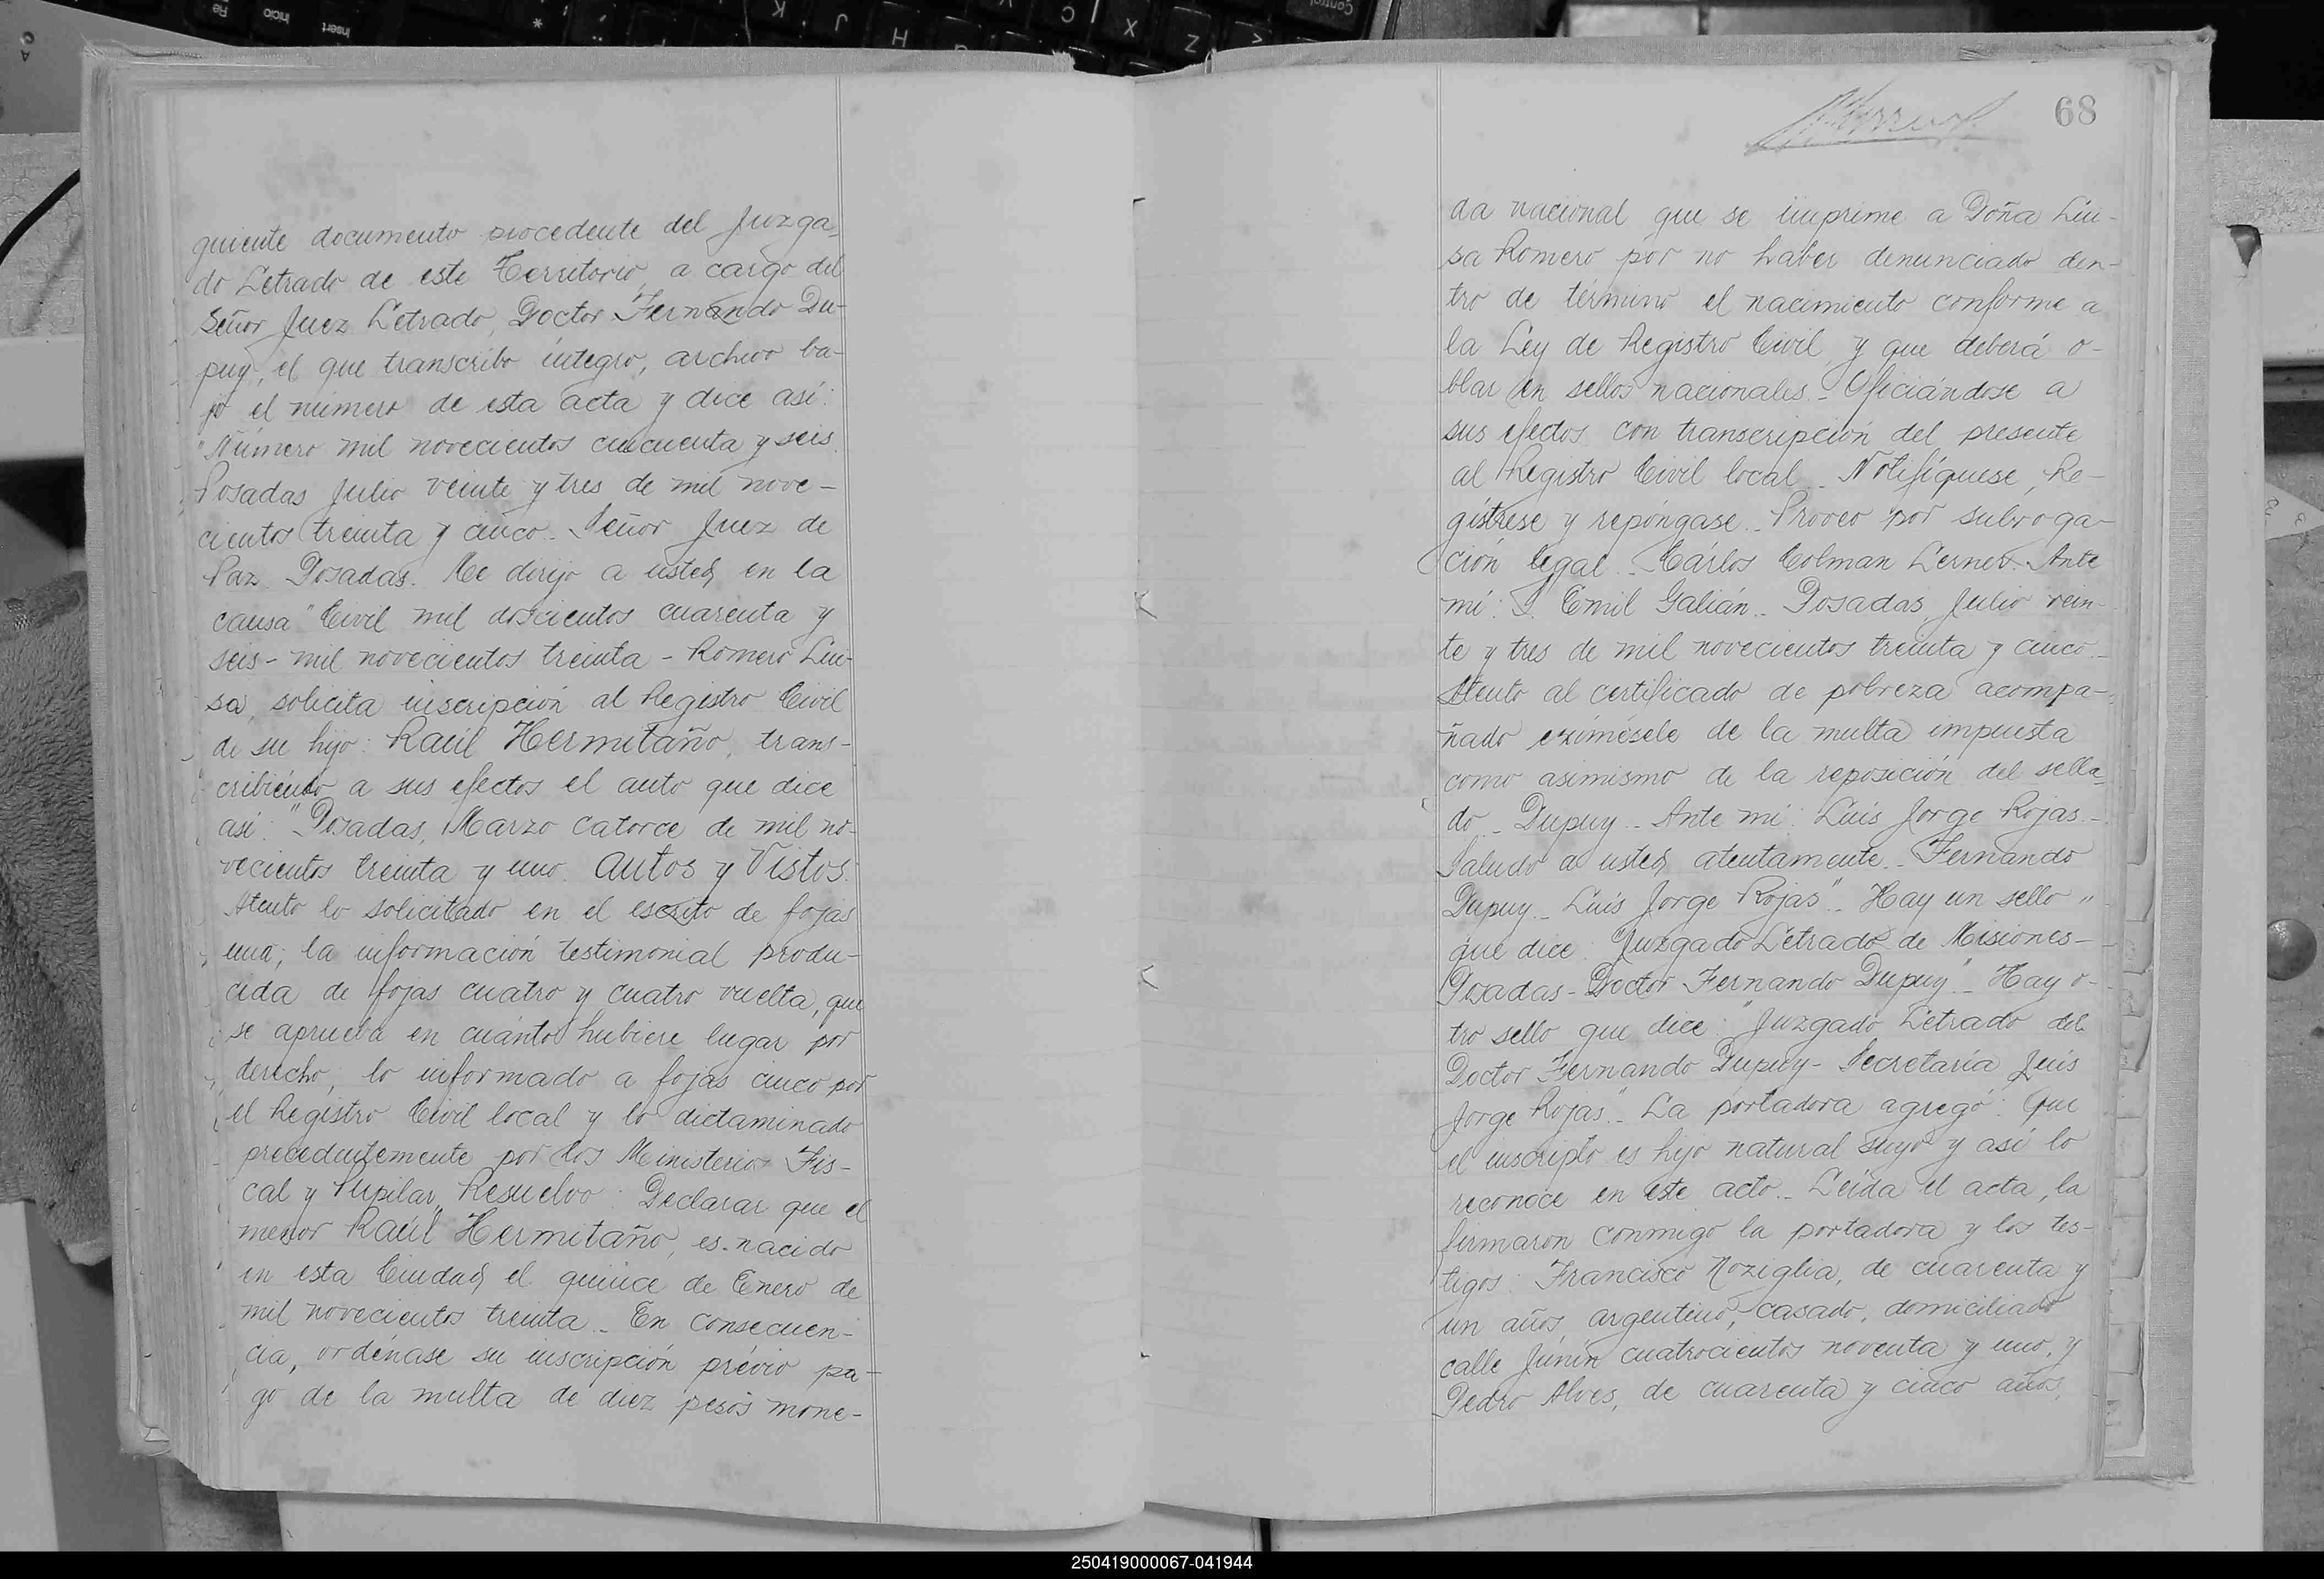 guiente documento procedente del Juzga-
do Letrado de este Territorio, a cargo del
Señor Juez Letrado, Doctor Fernando Du-
puy, el que transcribo íntegro, archivo ba-
jo el número de esta acta y dice así:
"Número mil novecientos cincuenta y seis.
Posadas Julio veinte y tres de mil nove-
cientos treinta y cinco.- Señor Juez de
Paz. Posadas. Me dirijo a usted en la
causa "Civil mil doscientos cuarenta y
seis - mil novecientos treinta - Romero Lui-
sa, solicita inscripción al Registro Civil
de su hijo: Raúl Hermitaño, trans-
cribiendo a sus efectos el auto que dice
así: "Posadas, Marzo catorce de mil no-
vecientos treinta y uno. Autos y Vistos:
Atento lo solicitado en el escrito de fojas
una; la información testimonial produ-
cida de fojas cuatro y cuatro vuelta, que
se aprueba en cuánto hubiere lugar por
derecho; lo informado a fojas cinco por
el Registro Civil local y lo dictaminado
precedentemente por los Ministerios Fis-
cal y Pupilar, Resuelvo: Declarar que el
menor Raúl Hermitaño, es nacido
en esta Ciudad el quince de Enero de
mil novecientos treinta.- En consecuen-
cia, ordénase su inscripción prévio pa-
go de la multa de diez pesos mone-
68
da nacional que se imprime a Doña Lui-
sa Romero por no haber denunciado den-
tro de término el nacimiento conforme a
la Ley de Registro Civil y que deberá o-
blar en sellos nacionales.- Oficiándose a
sus efectos con transcripción del presente
al Registro Civil local.- Notifíquese, Re-
gístrese y repóngase.- Proveo por subroga-
ción legal.- Cárlos Colman Lerner.- Ante
mí: S. Emil Galián.- Posadas Julio vein-
te y tres de mil novecientos treinta y cinco.-
Atento al certificado de pobreza acompa-
ñado exímésele de la multa impuesta
como asimismo de la reposición del sella-
do.- Dupuy.- Ante mí: Luis Jorge Rojas.-
Saludo a usted atentamente.- Fernando
Dupuy.- Luis Jorge Rojas".- Hay un sello "
que dice: Juzgado Letrado de Misiones-
Posadas - Doctor Fernando Dupuy".- Hay o-
tro sello que dice: "Juzgado Letrado del
Doctor Fernando Dupuy - Secretaría Luis
Jorge Rojas".- La portadora agregó: Que
el inscripto es hijo natural suyo y así lo
reconoce en este acto.- Leída el acta, la
firmaron conmigo la portadora y los tes-
tigos: Francisco Noziglia, de cuarenta y
un años, argentino, casado, domiciliado
calle Junín cuatrocientos noventa y uno, y
Pedro Alves, de cuarenta y cinco años,
250419000067-041944